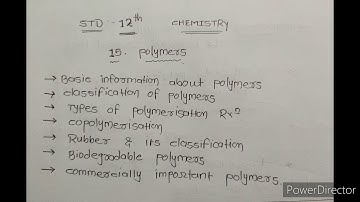 STD 12th CHEMISTRY
15. polymers
→ Basic information about polymers
→ classification of polymers
→ Types of polymerisation Rxn
→ copolymerisation
→ Rubber & its classification
→ Biodegradable polymers
→ commercially important polymers
PowerDirector